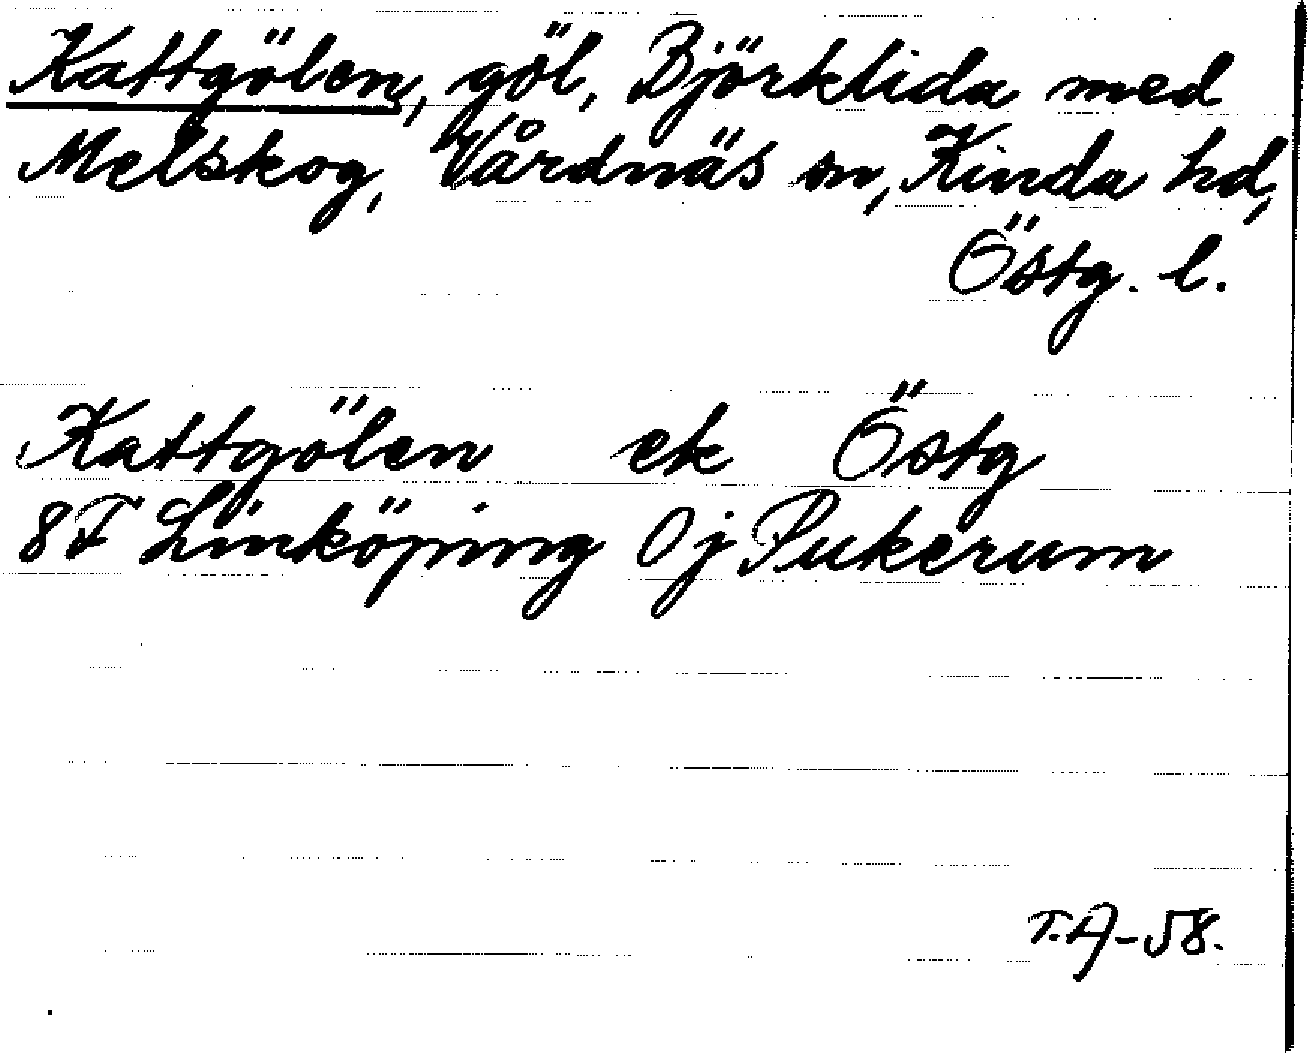 Kattgölen, göl, Björklida med
Melskog, Vårdnäs sn, Kinda hd,
Östg. l.
Kattgölen ek Östg
8F Linköping 0j Pukerum
T.A-58.